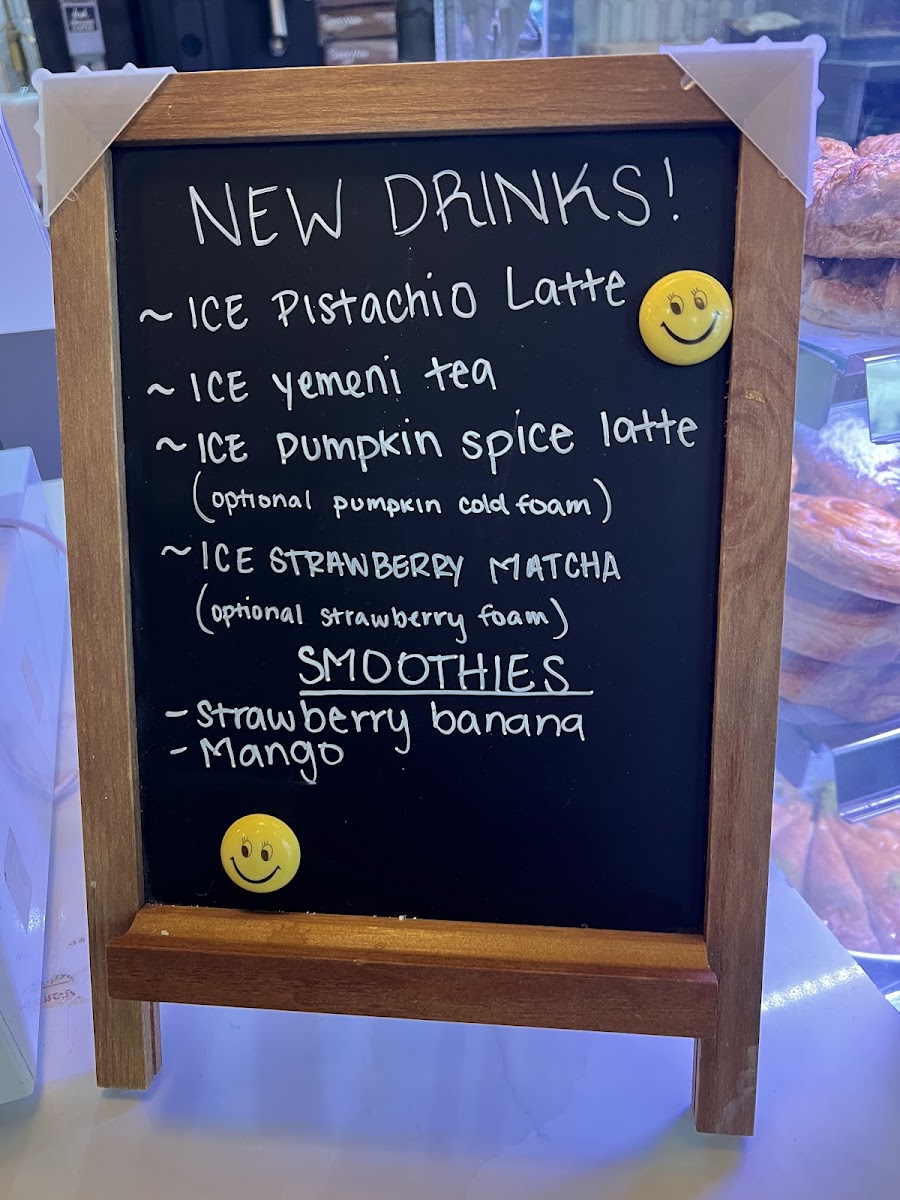 NEW DRINKS!
~ ICE Pistachio Latte
~ ICE yemeni tea
~ ICE pumpkin spice latte
(optional pumpkin cold foam)
~ ICE STRAWBERRY MATCHA
(optional strawberry foam)
SMOOTHIES
- Strawberry banana
- Mango